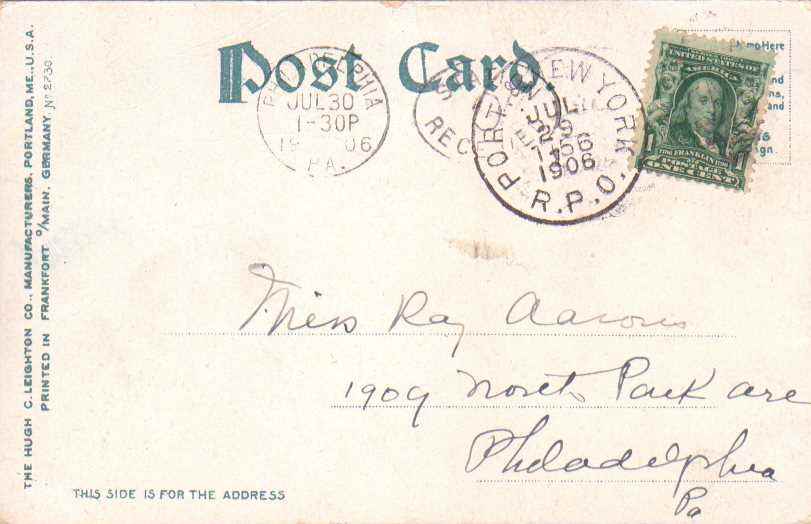 THE HUGH C. LEIGHTON CO., MANUFACTURERS, PORTLAND, ME., U.S.A.
PRINTED IN FRANKFORT o/MAIN, GERMANY. No 2730
Post Card.
PHILADELPHIA
JUL 30
1-30P
1906
PA.
REC
NEW YORK
1906
PORT
R.P.O.
Here
and
AMERICA
1 FRANKLIN 1
POSTAGE
ONE CENT
Miss Ray Aarons
1909 North Park Ave
Philadelphia
Pa
THIS SIDE IS FOR THE ADDRESS